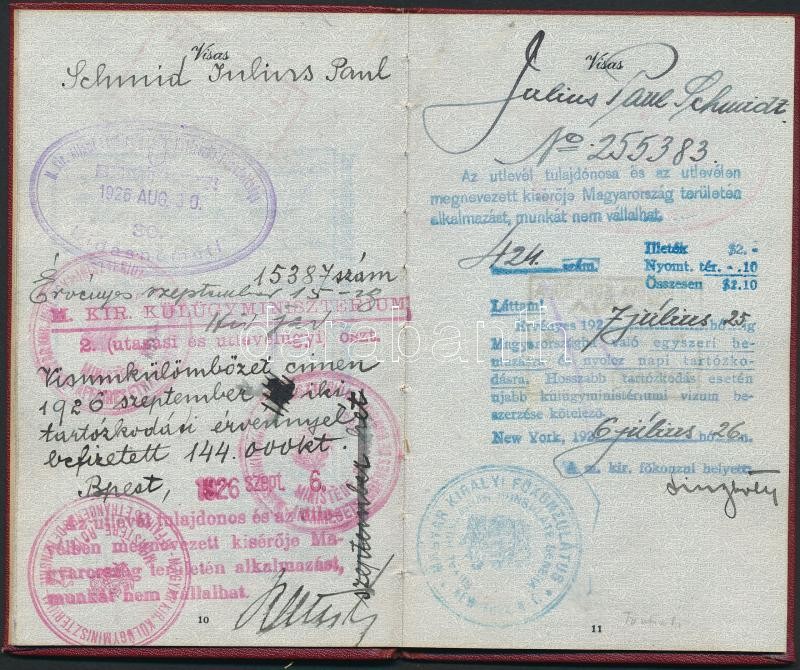 Visas
Schmid Julius Paul
1926 AUG. 30.
15387 szám
Érvényes szeptember 15-
M. KIR. KÜLÜGYMINISZTERIUM
2. (utazási és útlevélügyi) oszt.
Visumkülömbözet címen
1926 szeptember
tartózkodási érvénnyel
befizetett 144.000 kt.
Bpest, 1926 szept 6.
Az utlevél tulajdonos és az utle-
vélben megnevezett kisérője Ma-
gyarország területén alkalmazást,
munkát nem vállalhat.
10
Visas
Julius Paul Schmidt.
No. 255383.
Az utlevél tulajdonosa és az utlevélen
megnevezett kisérője Magyarország területén
alkalmazást, munkát nem vállalhat.
424. szám.
Illeték $2.-
Nyomt. tér. -.10
Összesen $2.10
Láttam!
Érvényes 192 7 július 25
Magyarországba való egyszeri be-
utazásra és nyolcz napi tartózko-
dásra. Hosszabb tartózkodás esetén
ujabb külügyminisztériumi vizum be-
szerzése kötelező.
New York, 192 6 július 26 n.
A m. kir. főkonzul helyett
MAGYAR KIRÁLYI FŐKONZULÁTUS
11
darabanth